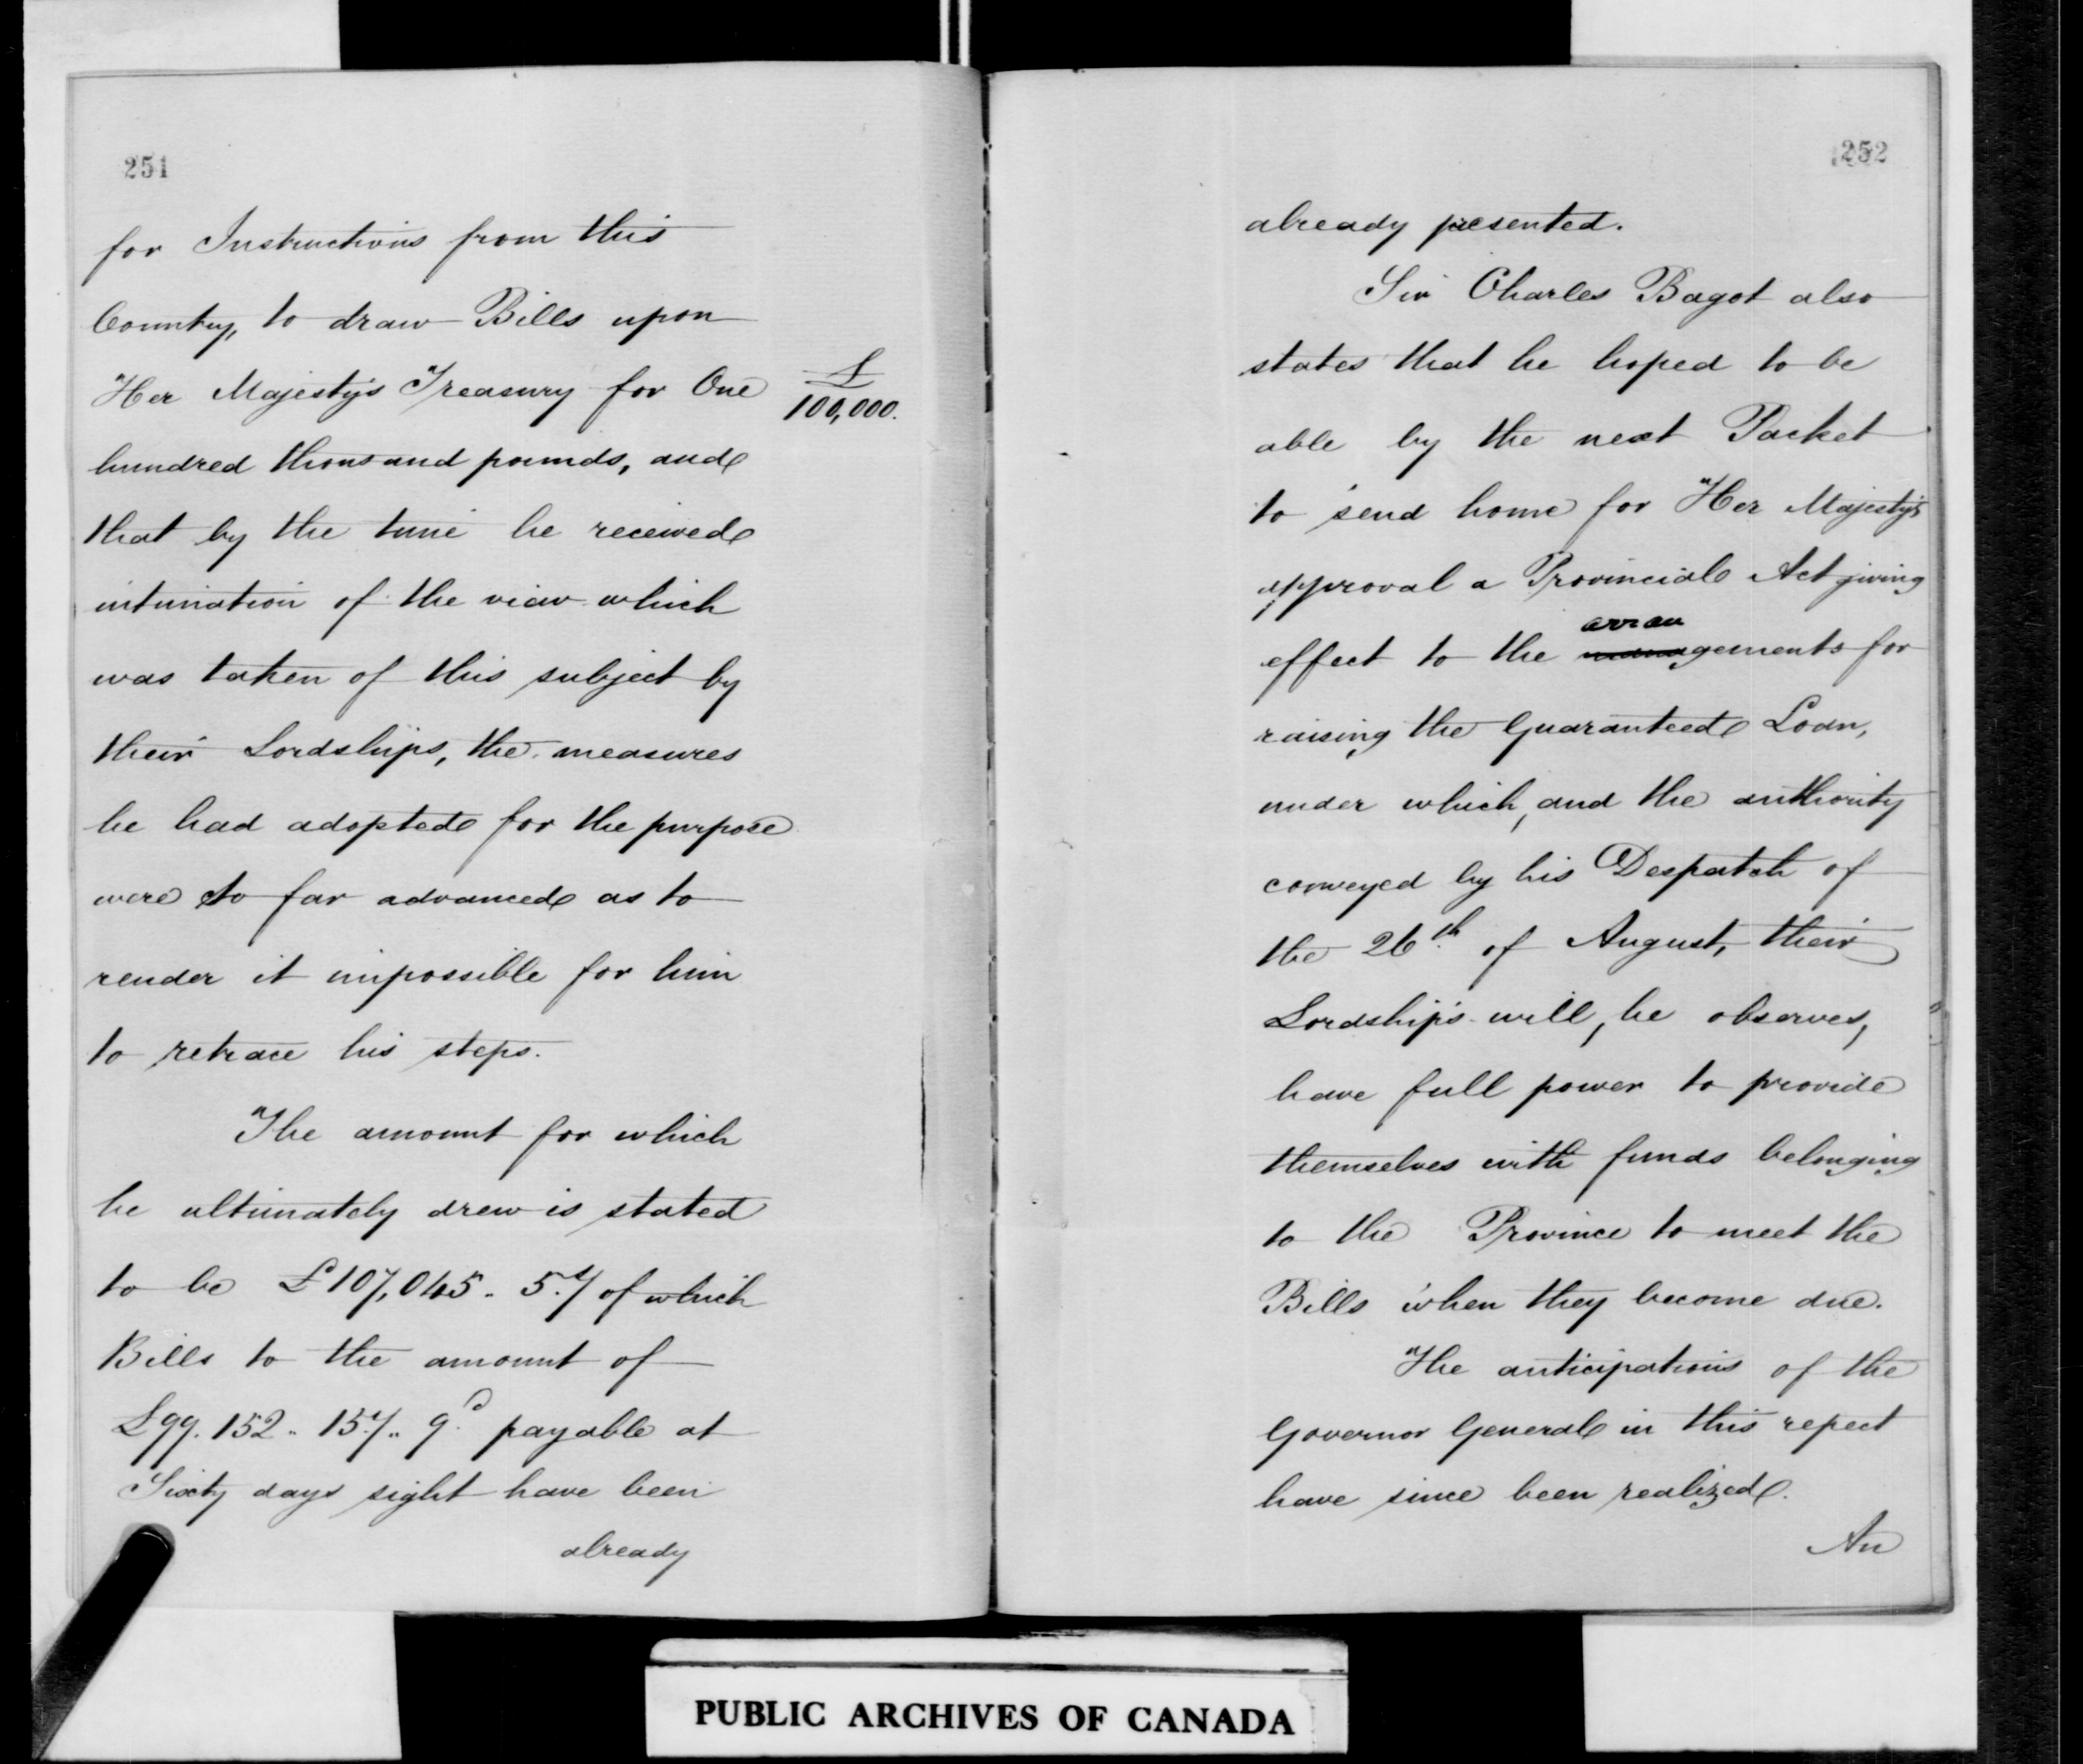 251
for Instructions from this
Country, to draw Bills upon
Her Majesty's Treasury for One
£
100,000.
hundred thousand pounds, and
that by the time he received
intimation of the view which
was taken of this subject by
their Lordships, the measures
he had adopted for the purpose
were so far advanced as to
render it impossible for him
to retrace his steps.
The amount for which
he ultimately drew is stated
to be £107,045. 5.s/ of which
Bills to the amount of
£99.152. 15.s/. 9.d payable at
Sixty days sight have been
already
252
already presented.
Sir Charles Bagot also
states that he hoped to be
able by the next Packet
to send home for Her Majesty's
approval a Provincial Act giving
arran
effect to the gements for
raising the Guaranteed Loan,
under which, and the authority
conveyed by his Despatch of
the 26th of August, their
Lordships will, he observes,
have full power to provide
themselves with funds belonging
to the Province to meet the
Bills when they become due.
The anticipations of the
Governor General in this repect
have since been realized.
An
PUBLIC ARCHIVES OF CANADA